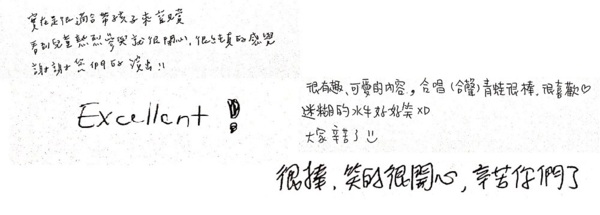 實在是很適合帶孩子來觀賞
看到兒童熱烈參與就很開心,很生動的感覺
謝謝您們的演出!!
Excellent!
很有趣、可愛的內容,合唱(合聲)青蛙很棒.很喜歡♡
迷糊的水牛好好笑XD
大家辛苦了!!
很棒.笑的很開心,辛苦你們了